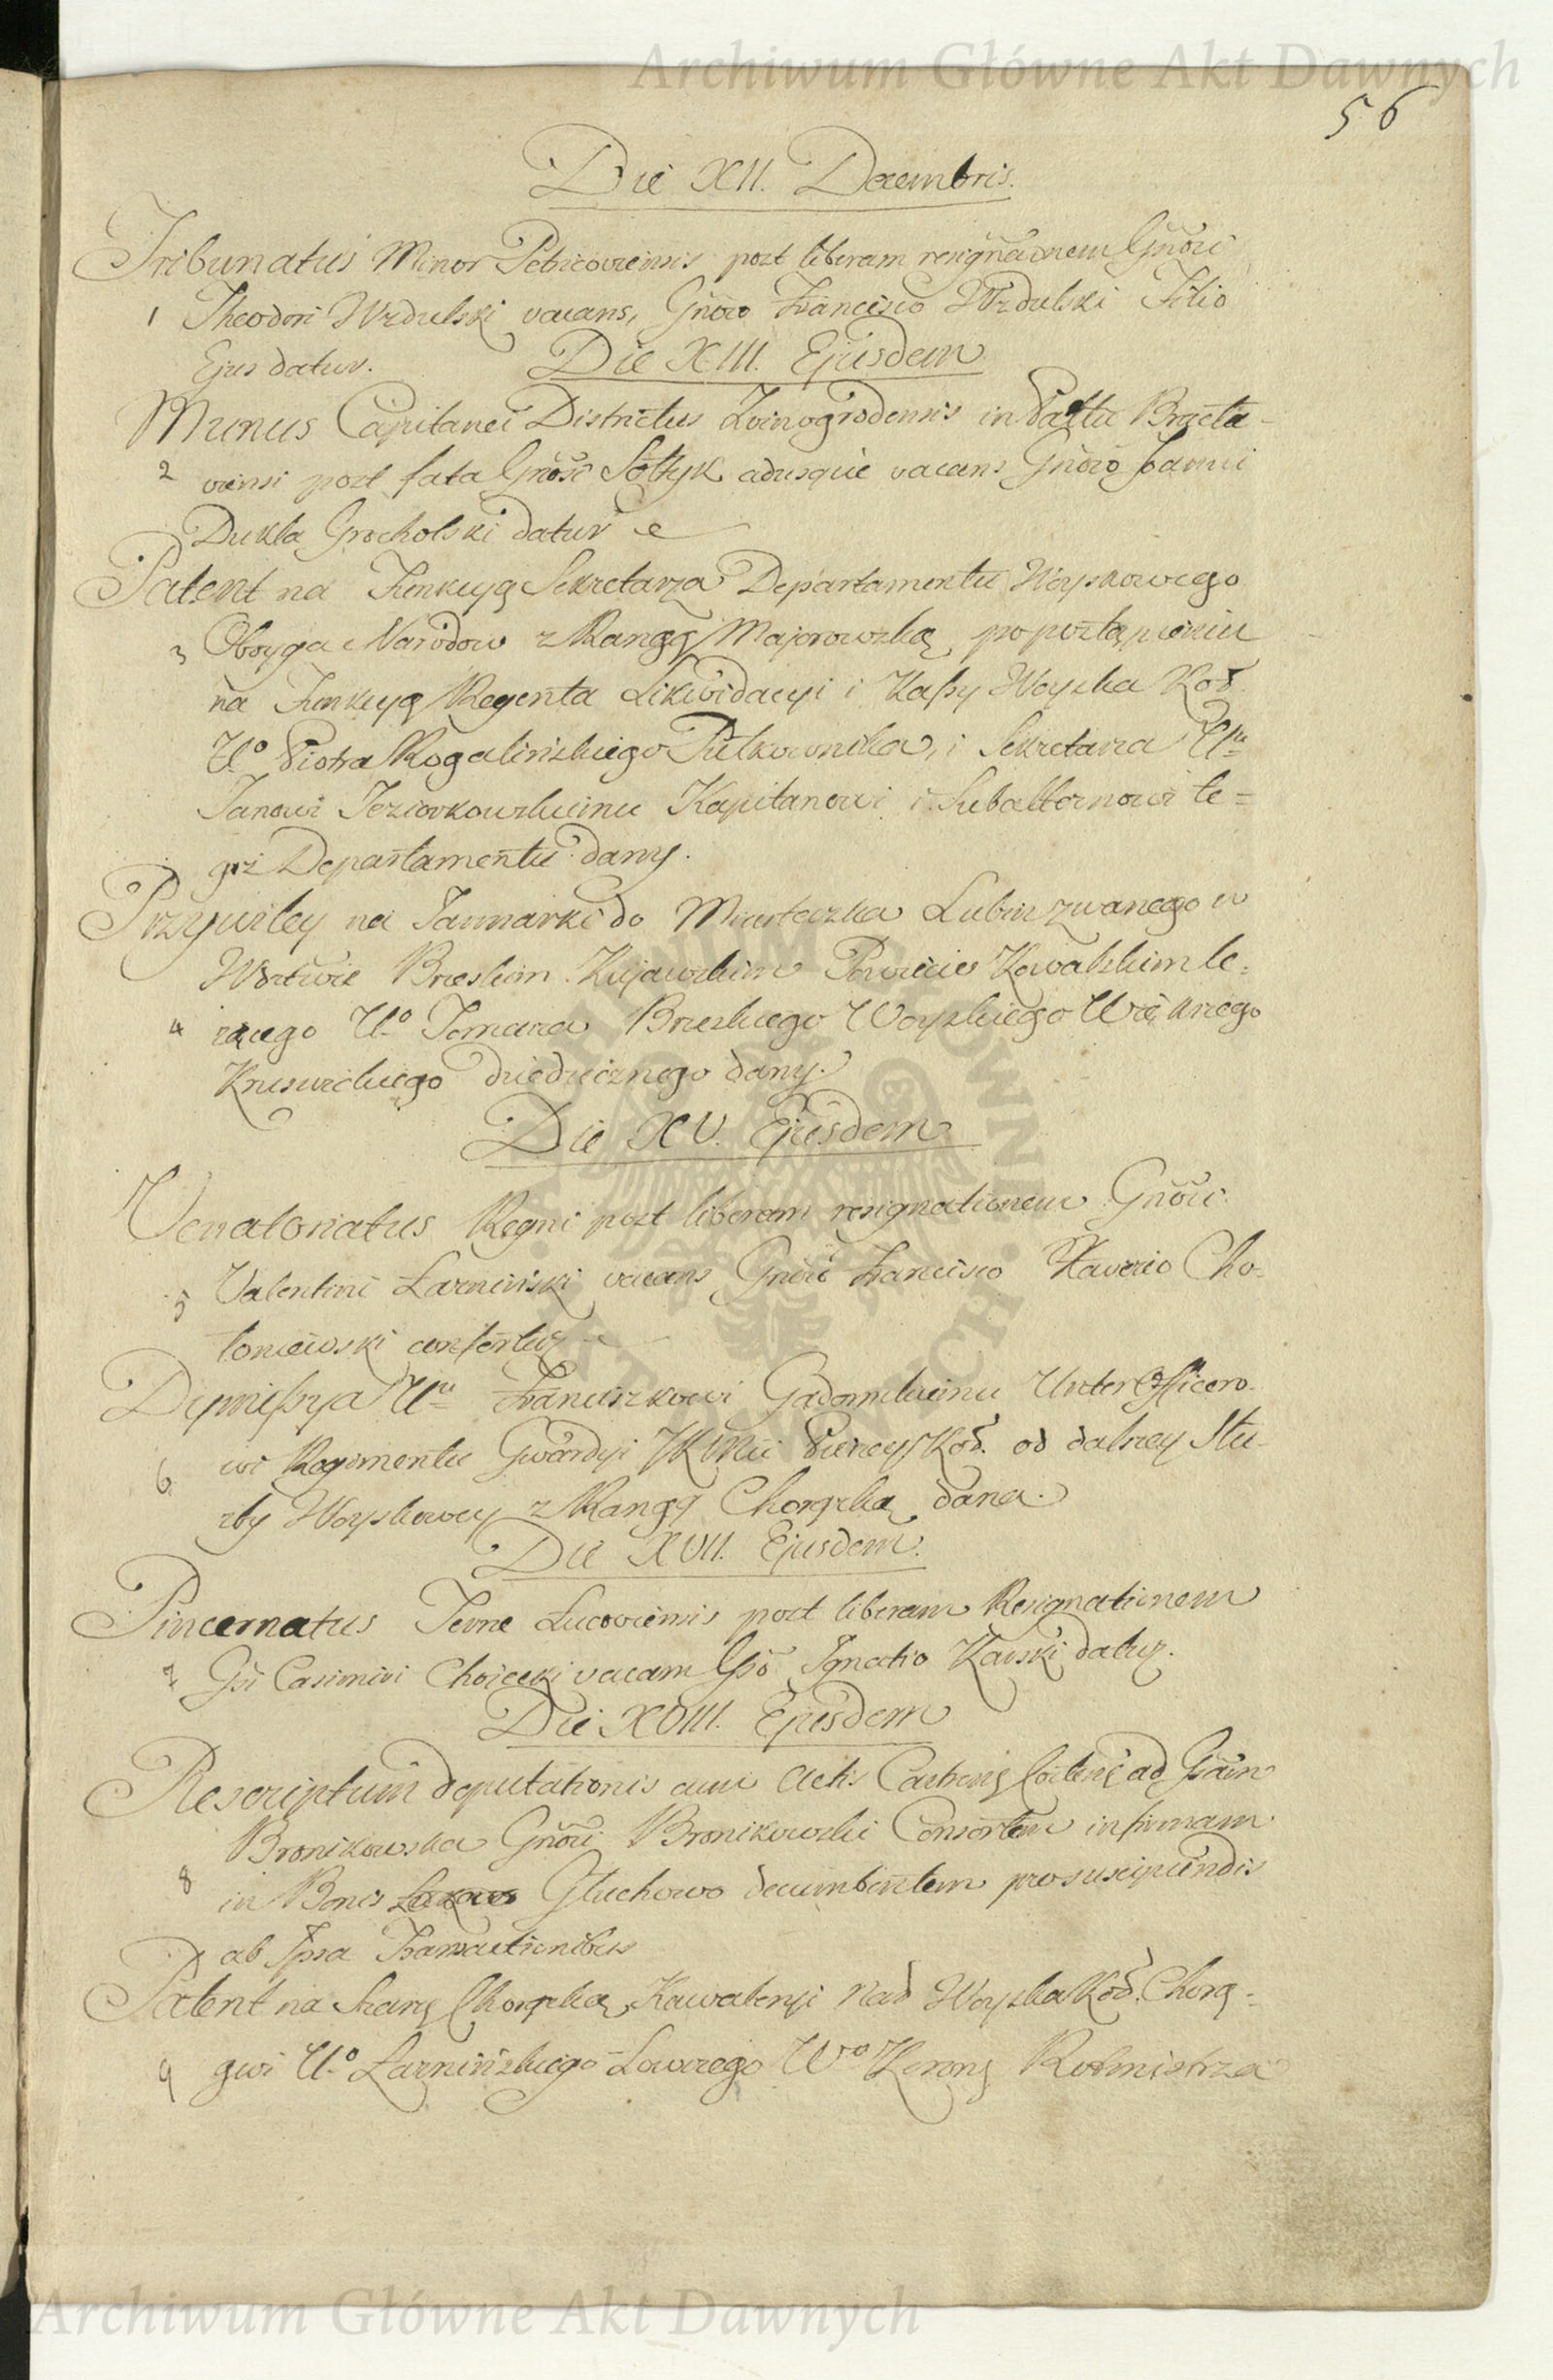 Archiwum Główne Akt Dawnych
56
Die XII. Decembris.
Tribunatus Minor Petricoviensis post liberam resignãõnem Gñosi
1 Theodori Wzdulski vacans, Gñoso Francisco Wzdulski Filio
Ejus datur. Die XIII. Ejusdem
Munus Capitanei Districtus Zwinogrodensis in Pałtu Bracła-
2 viensi post fata Gñosi Sołtyk adusque vacans Gñoso
Dukla Grocholski datur
Patent na Funkcyą Sekretarza Departamentu Woyskowego
3 Oboyga Narodow z Rangą Majorowską po postąpieniu
na Funkcyą Regenta Likwidacyi i Kassy Woyska Kor.
U.o Piotra Rogalińskiego Pułkownika, i Sekretarza U.mu
Janowi Jeziorkowskiemu Kapitanowi i Subalternowi te=
goż Departamentu dany.
Przywiley na Jarmarki do Miasteczka Lubin zwanego w
Wdztwie Brzeskim Kujawskim Powiecie Kowalskim le=
4 żącego U.o Tomasza Brzeskiego Woyskiego Więknego
Kruswickiego dziedzicznego dany.
Die XV. Ejusdem
Venatoriatus Regni post liberam resignationem Gñosi
5 Valentini Łarniński vacans Gñoso Francisco Xaverio Cho-
łoniewski confertur
Dymissya U.mu Franciszkowi Gadomskiemu Unter Officero-
6 wi Regimentu Gwardyi JKMci Pieszey Kor. od dalszey Słu-
żby Woyskowey z Rangą Chorążką dana.
Die XVII. Ejusdem.
Pincernatus Terræ Lucoviensis post liberam Resignationem
7 Gsi Casimiri Choiecki vacans Gso Ignatio Karski datur.
Die XVIII. Ejusdem
Rescriptum deputationis cum Actis ad Gsam
Bronikowska Gñosi Bronikowski Consortem infirmam
8 in Bonis Głuchowo decumbentem pro suscipiendis
ab Ipsa Transactionibus
Patent na Szarżę Chorążką Kawaleryi Nad Woyska Kor. Chorą-
9 gwi U.o Łarnińskiego Łowczego W.o Korony Rotmistrza
Archiwum Główne Akt Dawnych